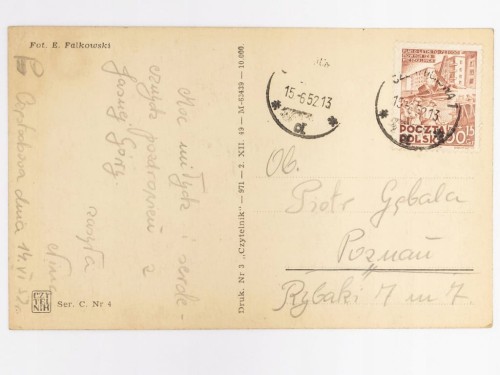 Fot. E. Falkowski
Moc miłych i serde-
cznych pozdrowień z
Jasnej Góry
zasyła
Nina
Częstochowa dnia 14.VI.52r.
Ser. C. Nr 4
Druk. Nr 3 „Czytelnik" — 971 — 2. XII. 49 — M-63439 — 10.000.
15-6.52.13
d
POCZTA
POLSKA
Ob.
Piotr Gębala
Poznań
Rybaki 7 m 7.